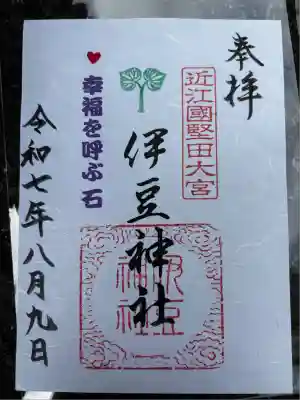 奉拝
近江國堅田大宮
伊豆神社
伊豆
神社
♥幸福を呼ぶ石
令和七年八月九日